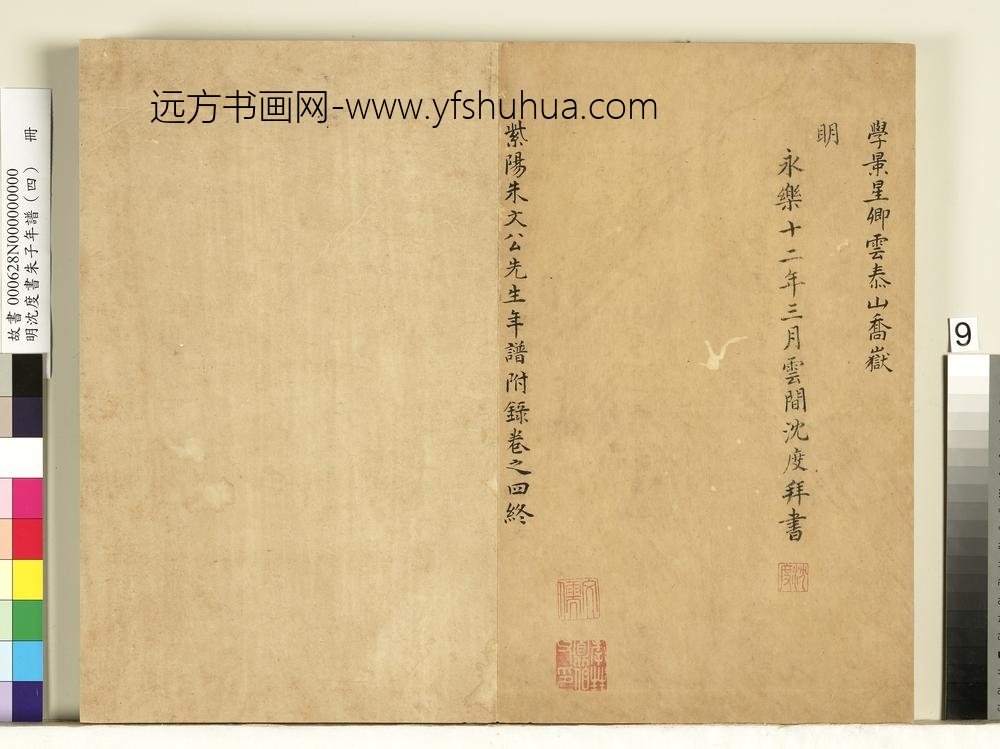 远方书画网-www.yfshuhua.com
學景星卿雲泰山喬嶽
明
永樂十二年三月雲間沈度拜書
沈度
紫陽朱文公先生年譜附錄卷之四終
文儒
故書 000628N000000000
明沈度書朱子年譜(四) 冊
9